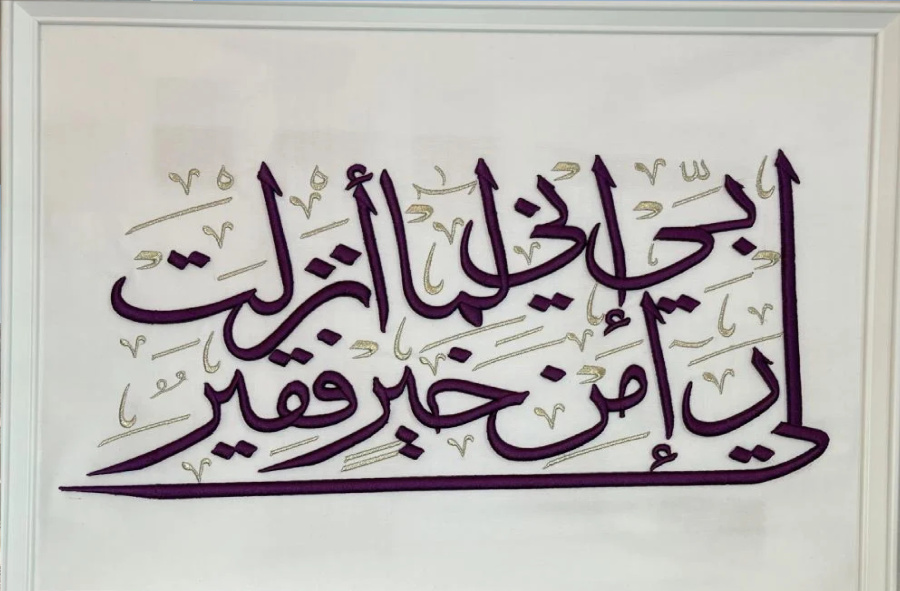 رب إني لما أنزلت
إلي من خير فقير